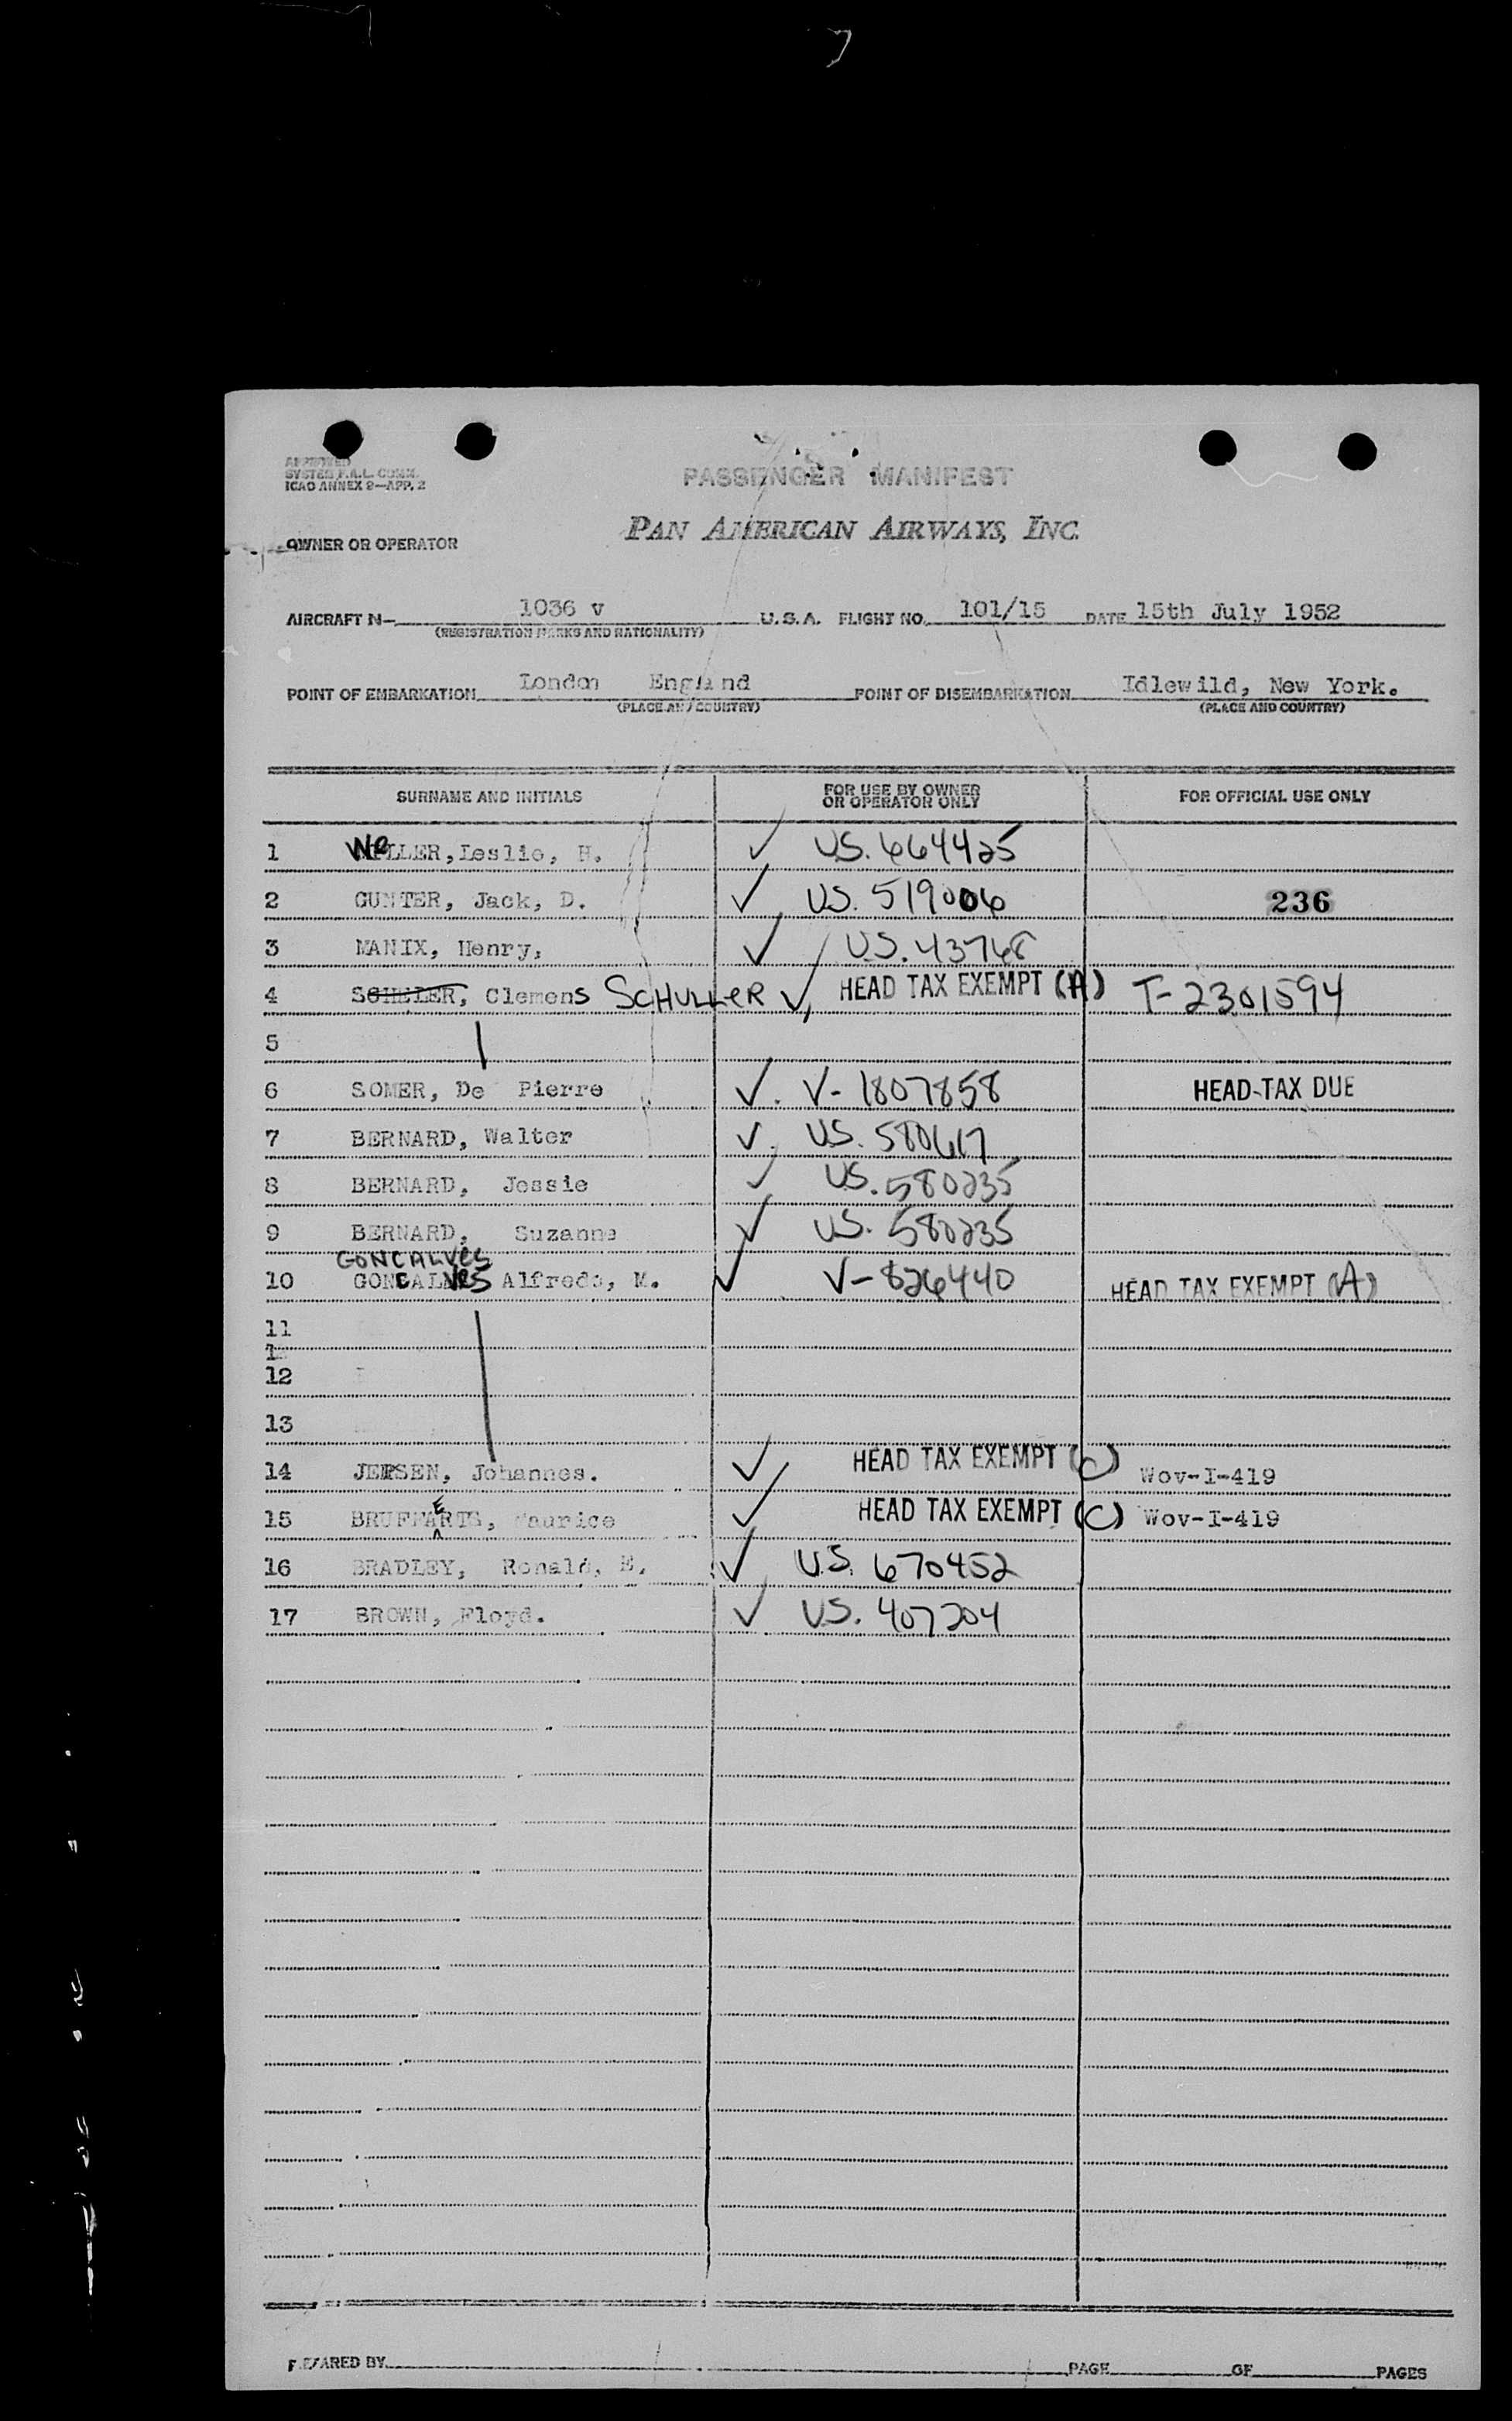 APPROVED
SYSTEM F.A.L. COMM.
ICAO ANNEX 9—APP. 2
PASSENGER MANIFEST
PAN AMERICAN AIRWAYS, INC.
OWNER OR OPERATOR
AIRCRAFT N- 1036 v U.S.A. FLIGHT NO. 101/15 DATE 15th July 1952
(REGISTRATION MARKS AND NATIONALITY)
POINT OF EMBARKATION London England POINT OF DISEMBARKATION Idlewild, New York.
(PLACE AND COUNTRY) (PLACE AND COUNTRY)
SURNAME AND INITIALS FOR USE BY OWNER OR OPERATOR ONLY FOR OFFICIAL USE ONLY
1 WeLLER, Leslie, H. ✓ US. 664425
2 GUNTER, Jack, D. ✓ US. 519006 236
3 MANIX, Henry, ✓ U.S. 43768
4 Clemens SCHULLER ✓ HEAD TAX EXEMPT (A) T-2301594
5
6 SOMER, De Pierre ✓ V-1807858 HEAD-TAX DUE
7 BERNARD, Walter ✓ US. 580617
8 BERNARD, Jessie ✓ US. 580235
9 BERNARD, Suzanne ✓ US. 580235
GONCALVES
10 GONCALVES Alfredo, M. ✓ V-826440 HEAD TAX EXEMPT (A)
11
12
13
14 JEPSEN, Johannes. ✓ HEAD TAX EXEMPT (C) Wov-I-419
15 Maurice ✓ HEAD TAX EXEMPT (C) Wov-I-419
16 BRADLEY, Ronald, E. ✓ U.S. 670452
17 BROWN, Floyd. ✓ U.S. 407204
PREPARED BY PAGE OF PAGES